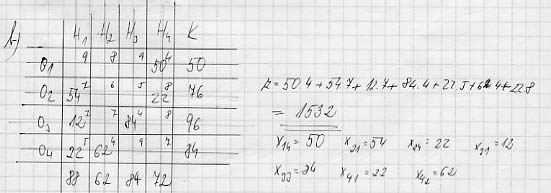 b)
H1 H2 H3 H4 K
O1 9 8 9 50 4 50
O2 54 7 6 5 22 8 76
O3 12 7 7 84 4 8 96
O4 22 5 62 4 9 7 84
88 62 84 72
= 50.4 + 54.7 + 12.7 + 84.4 + 22.5 + 62.4 + 22.8
= 1532
x14 = 50 x21 = 54 x24 = 22 x31 = 12
x33 = 84 x41 = 22 x42 = 62